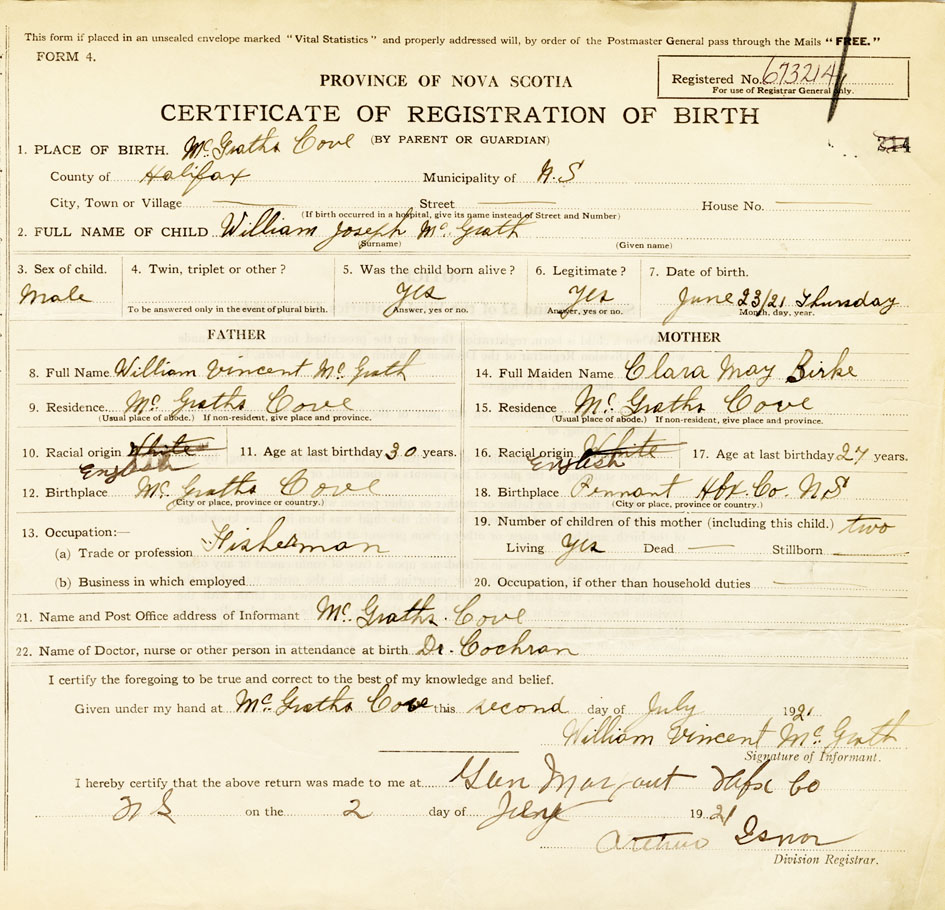 This form if placed in an unsealed envelope marked "Vital Statistics" and properly addressed will, by order of the Postmaster General pass through the Mails "FREE."
FORM 4.
PROVINCE OF NOVA SCOTIA
Registered No. 673214
For use of Registrar General only.
CERTIFICATE OF REGISTRATION OF BIRTH
(BY PARENT OR GUARDIAN)
1. PLACE OF BIRTH. Mc Graths Cove
County of Halifax Municipality of N.S
City, Town or Village Street House No.
(If birth occurred in a hospital, give its name instead of Street and Number)
2. FULL NAME OF CHILD William Joseph Mc Grath
(Surname) (Given name)
3. Sex of child. 4. Twin, triplet or other? 5. Was the child born alive? 6. Legitimate? 7. Date of birth.
Male Yes Yes June 23/21 Thursday
To be answered only in the event of plural birth. Answer, yes or no. Answer, yes or no. Month, day, year.
FATHER
8. Full Name William Vincent Mc Grath
9. Residence Mc Graths Cove
(Usual place of abode.) If non-resident, give place and province.
10. Racial origin White 11. Age at last birthday 30 years.
English
12. Birthplace Mc Graths Cove
(City or place, province or country.)
13. Occupation:—
(a) Trade or profession Fisherman
(b) Business in which employed
MOTHER
14. Full Maiden Name Clara May Birke
15. Residence Mc Graths Cove
(Usual place of abode.) If non-resident, give place and province.
16. Racial origin White 17. Age at last birthday 27 years.
English
18. Birthplace Pennant Hfx. Co. N.S
(City or place, province or country.)
19. Number of children of this mother (including this child.) two
Living Yes Dead — Stillborn
20. Occupation, if other than household duties
21. Name and Post Office address of Informant Mc Graths Cove
22. Name of Doctor, nurse or other person in attendance at birth Dr. Cochran
I certify the foregoing to be true and correct to the best of my knowledge and belief.
Given under my hand at Mc Graths Cove this second day of July 1921
William Vincent Mc Grath
Signature of Informant.
I hereby certify that the above return was made to me at Glen Margaut Hfx Co
N S on the 2 day of July 1921
Isnor
Division Registrar.